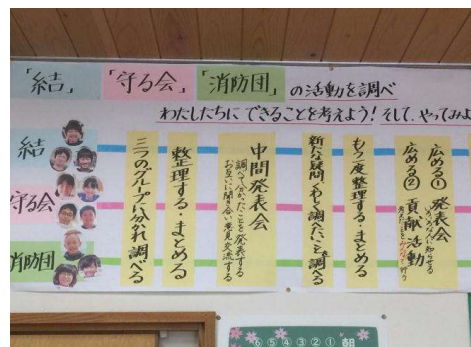 「結」「守る会」「消防団」の活動を調べ
わたしたちにできることを考えよう！そして、やってみよ
結
守る会
消防団
三つのグループに分かれ調べる
整理する・まとめる
中間発表会
調べて分かったことを発表する
お互いに聞き合い意見交流する
新たな疑問・くわしく調べたいことを調べる
もう一度整理する・まとめる
広める① 発表会
いろいろな人に知らせる
広める② 貢献活動
⑥⑤④③②① 朝